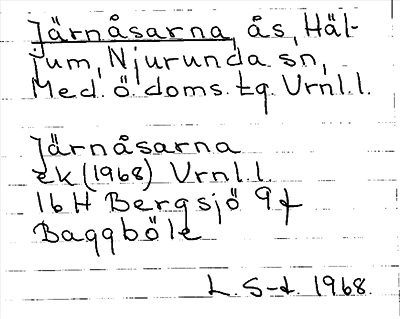 Järnåsarna, ås, Häl-
jum, Njurunda sn,
Med. ö. doms. tg. Vrnl.l.
Järnåsarna
ek (1968) Vrnl.l.
16 H Bergsjö 9 f
Baggböle
L. S-d. 1968.